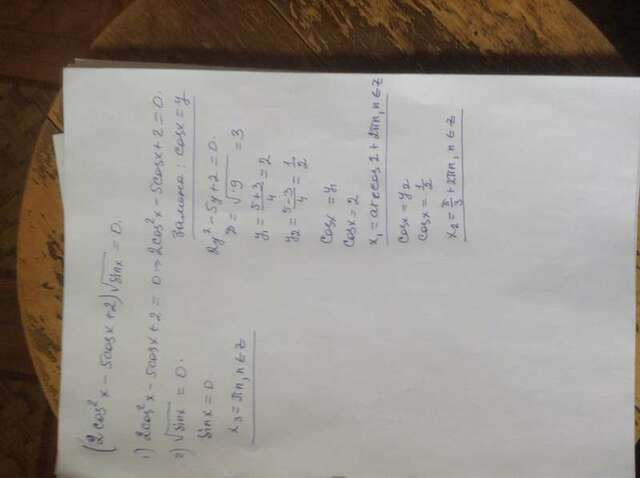 (2cos²x - 5cosx + 2)√sinx = 0.
1) 2cos²x - 5cosx + 2 = 0 → 2cos²x - 5cosx + 2 = 0.
2) √sinx = 0.
sinx = 0.
x₃ = πn, n ∈ Z
Замена: cosx = y
2y² - 5y + 2 = 0.
D = √9 = 3
y₁ = (5+3)/4 = 2
y₂ = (5-3)/4 = 1/2
cosx = y₁
cosx = 2
x₁ = arccos 2 + 2πn, n ∈ Z
cosx = y₂
cosx = 1/2
x₂ = π/3 + 2πn, n ∈ Z